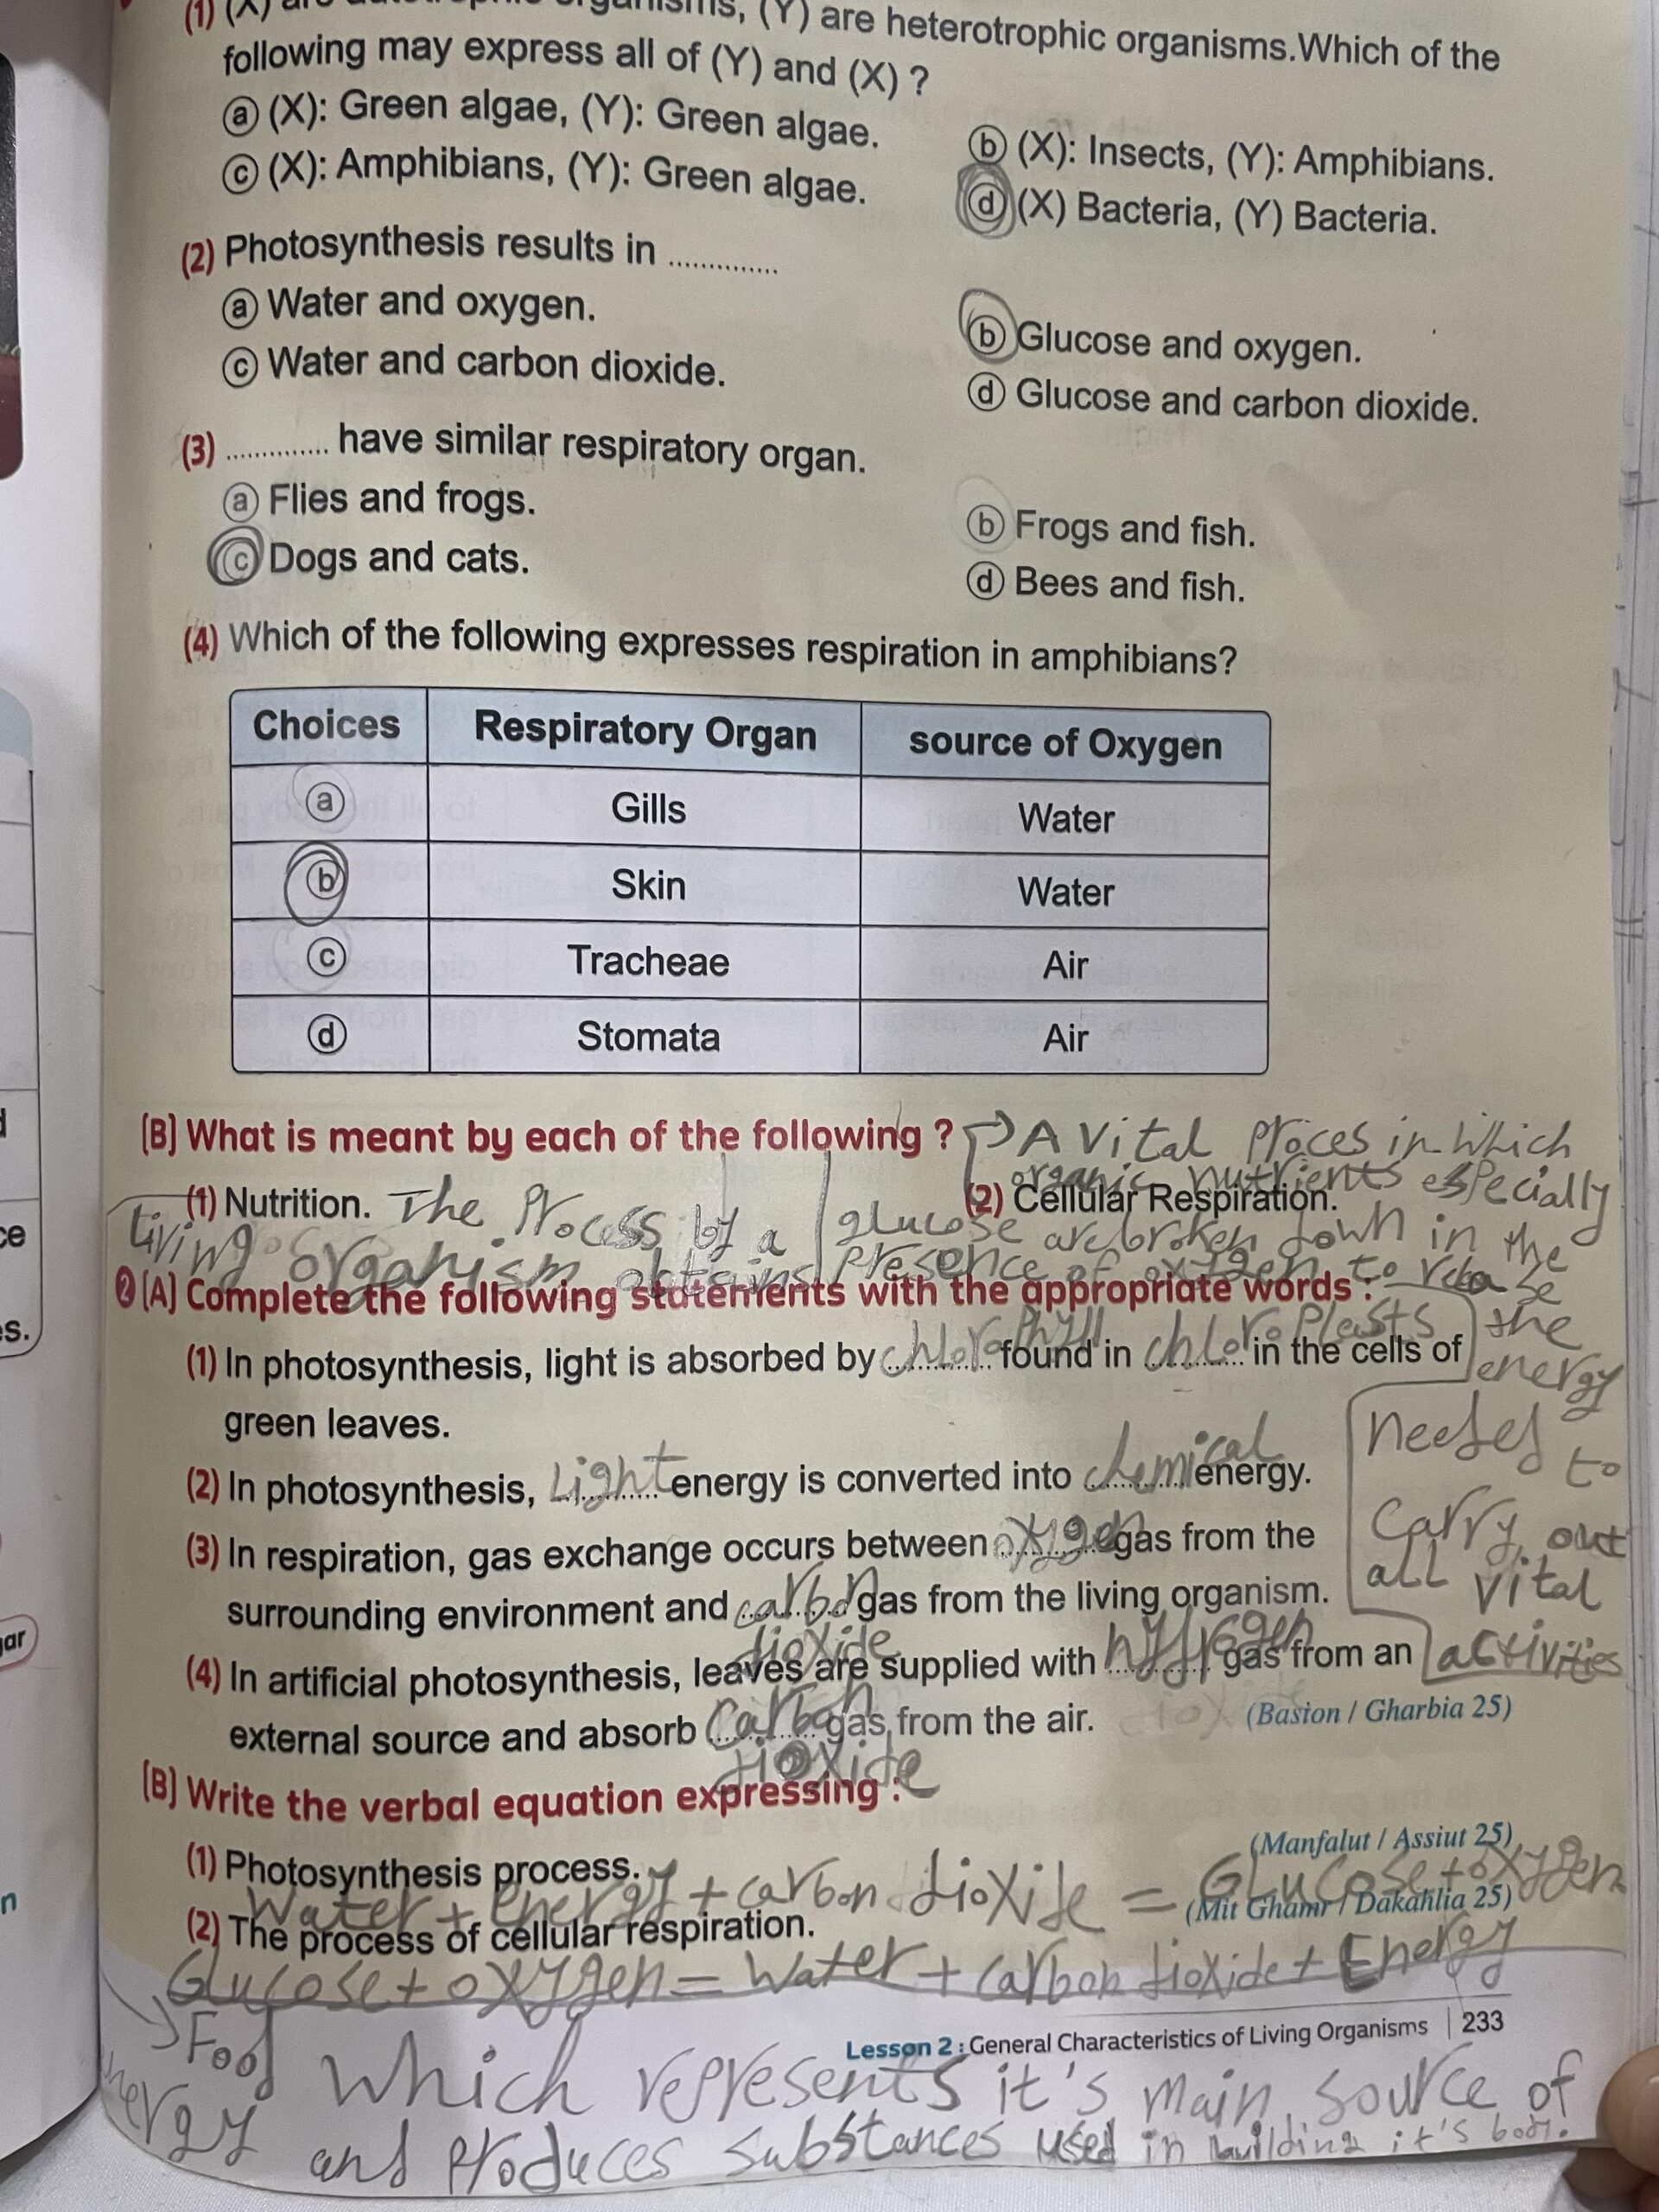 (1) (X) are autotrophic organisms, (Y) are heterotrophic organisms.Which of the
following may express all of (Y) and (X) ?
ⓐ (X): Green algae, (Y): Green algae.
ⓑ (X): Insects, (Y): Amphibians.
ⓒ (X): Amphibians, (Y): Green algae.
ⓓ (X) Bacteria, (Y) Bacteria.
(2) Photosynthesis results in ..............
ⓐ Water and oxygen.
ⓑ Glucose and oxygen.
ⓒ Water and carbon dioxide.
ⓓ Glucose and carbon dioxide.
(3) .............. have similar respiratory organ.
ⓐ Flies and frogs.
ⓑ Frogs and fish.
ⓒ Dogs and cats.
ⓓ Bees and fish.
(4) Which of the following expresses respiration in amphibians?
Choices Respiratory Organ source of Oxygen
ⓐ Gills Water
ⓑ Skin Water
ⓒ Tracheae Air
ⓓ Stomata Air
(B) What is meant by each of the following ?
A vital proces in which
organic nutrients especially
(1) Nutrition. The Process by a
(2) Cellular Respiration.
glucose are broken down in the
Living organism obtains
presence of oxygen to
the
energy
needed
to
carry out
all vital
activities
❷ (A) Complete the following statements with the appropriate words :
(1) In photosynthesis, light is absorbed by chlorophyll found in chloroplasts in the cells of
green leaves.
(2) In photosynthesis, Light energy is converted into chemical energy.
(3) In respiration, gas exchange occurs between oxygen gas from the
surrounding environment and carbon dioxide gas from the living organism.
(4) In artificial photosynthesis, leaves are supplied with hydrogen gas from an
external source and absorb Carbon dioxide gas from the air.
(Basion / Gharbia 25)
(B) Write the verbal equation expressing :
(1) Photosynthesis process.
(Manfalut / Assiut 25)
Water + energy + carbon dioxide = Glucose + oxygen
(2) The process of cellular respiration.
(Mit Ghamr / Dakahlia 25)
Glucose + oxygen = Water + Carbon dioxide + Energy
Lesson 2 : General Characteristics of Living Organisms 233
Food which represents it's main source of
energy and produces substances used in building it's body.